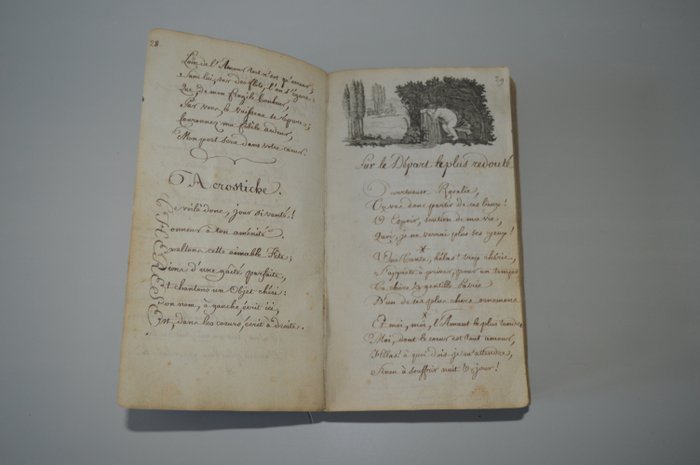 28
Loin de l'Amour tout n'est qu'erreur;
Sans lui, sur des flots, l'on s'égare:
Que, de mon fragile bonheur,
Par vous, le Vaisseau se répare;
Couronnez ma fidèle ardeur,
Mon port sera dans votre cœur.
Acrostiche.
Te voilà donc, jour si vanté!
Honneur à ton aménité.
Exaltons cette aimable Fête;
Rions d'une gaîté parfaite,
Et chantons un Objet chéri:
Son nom, à gauche, écrit ici,
Est, dans les cœurs, écrit à droite.
29
Sur le Départ le plus redouté
vertueuse Rosalie,
Tu vas donc partir de ces lieux!
O Espoir, soutien de ma vie,
Quoi, je ne verrai plus ses yeux!
*
Tante, hélas! trop chérie,
S'apprête à priver, pour un temps
Sa chère & gentille Patrie
D'un de ses plus chers ornemens
*
Et moi, moi, l'Amant le plus tendre
Moi, dont le cœur est tout amour,
Hélas! à quoi dois-je m'attendre,
Sinon à souffrir nuit & jour!